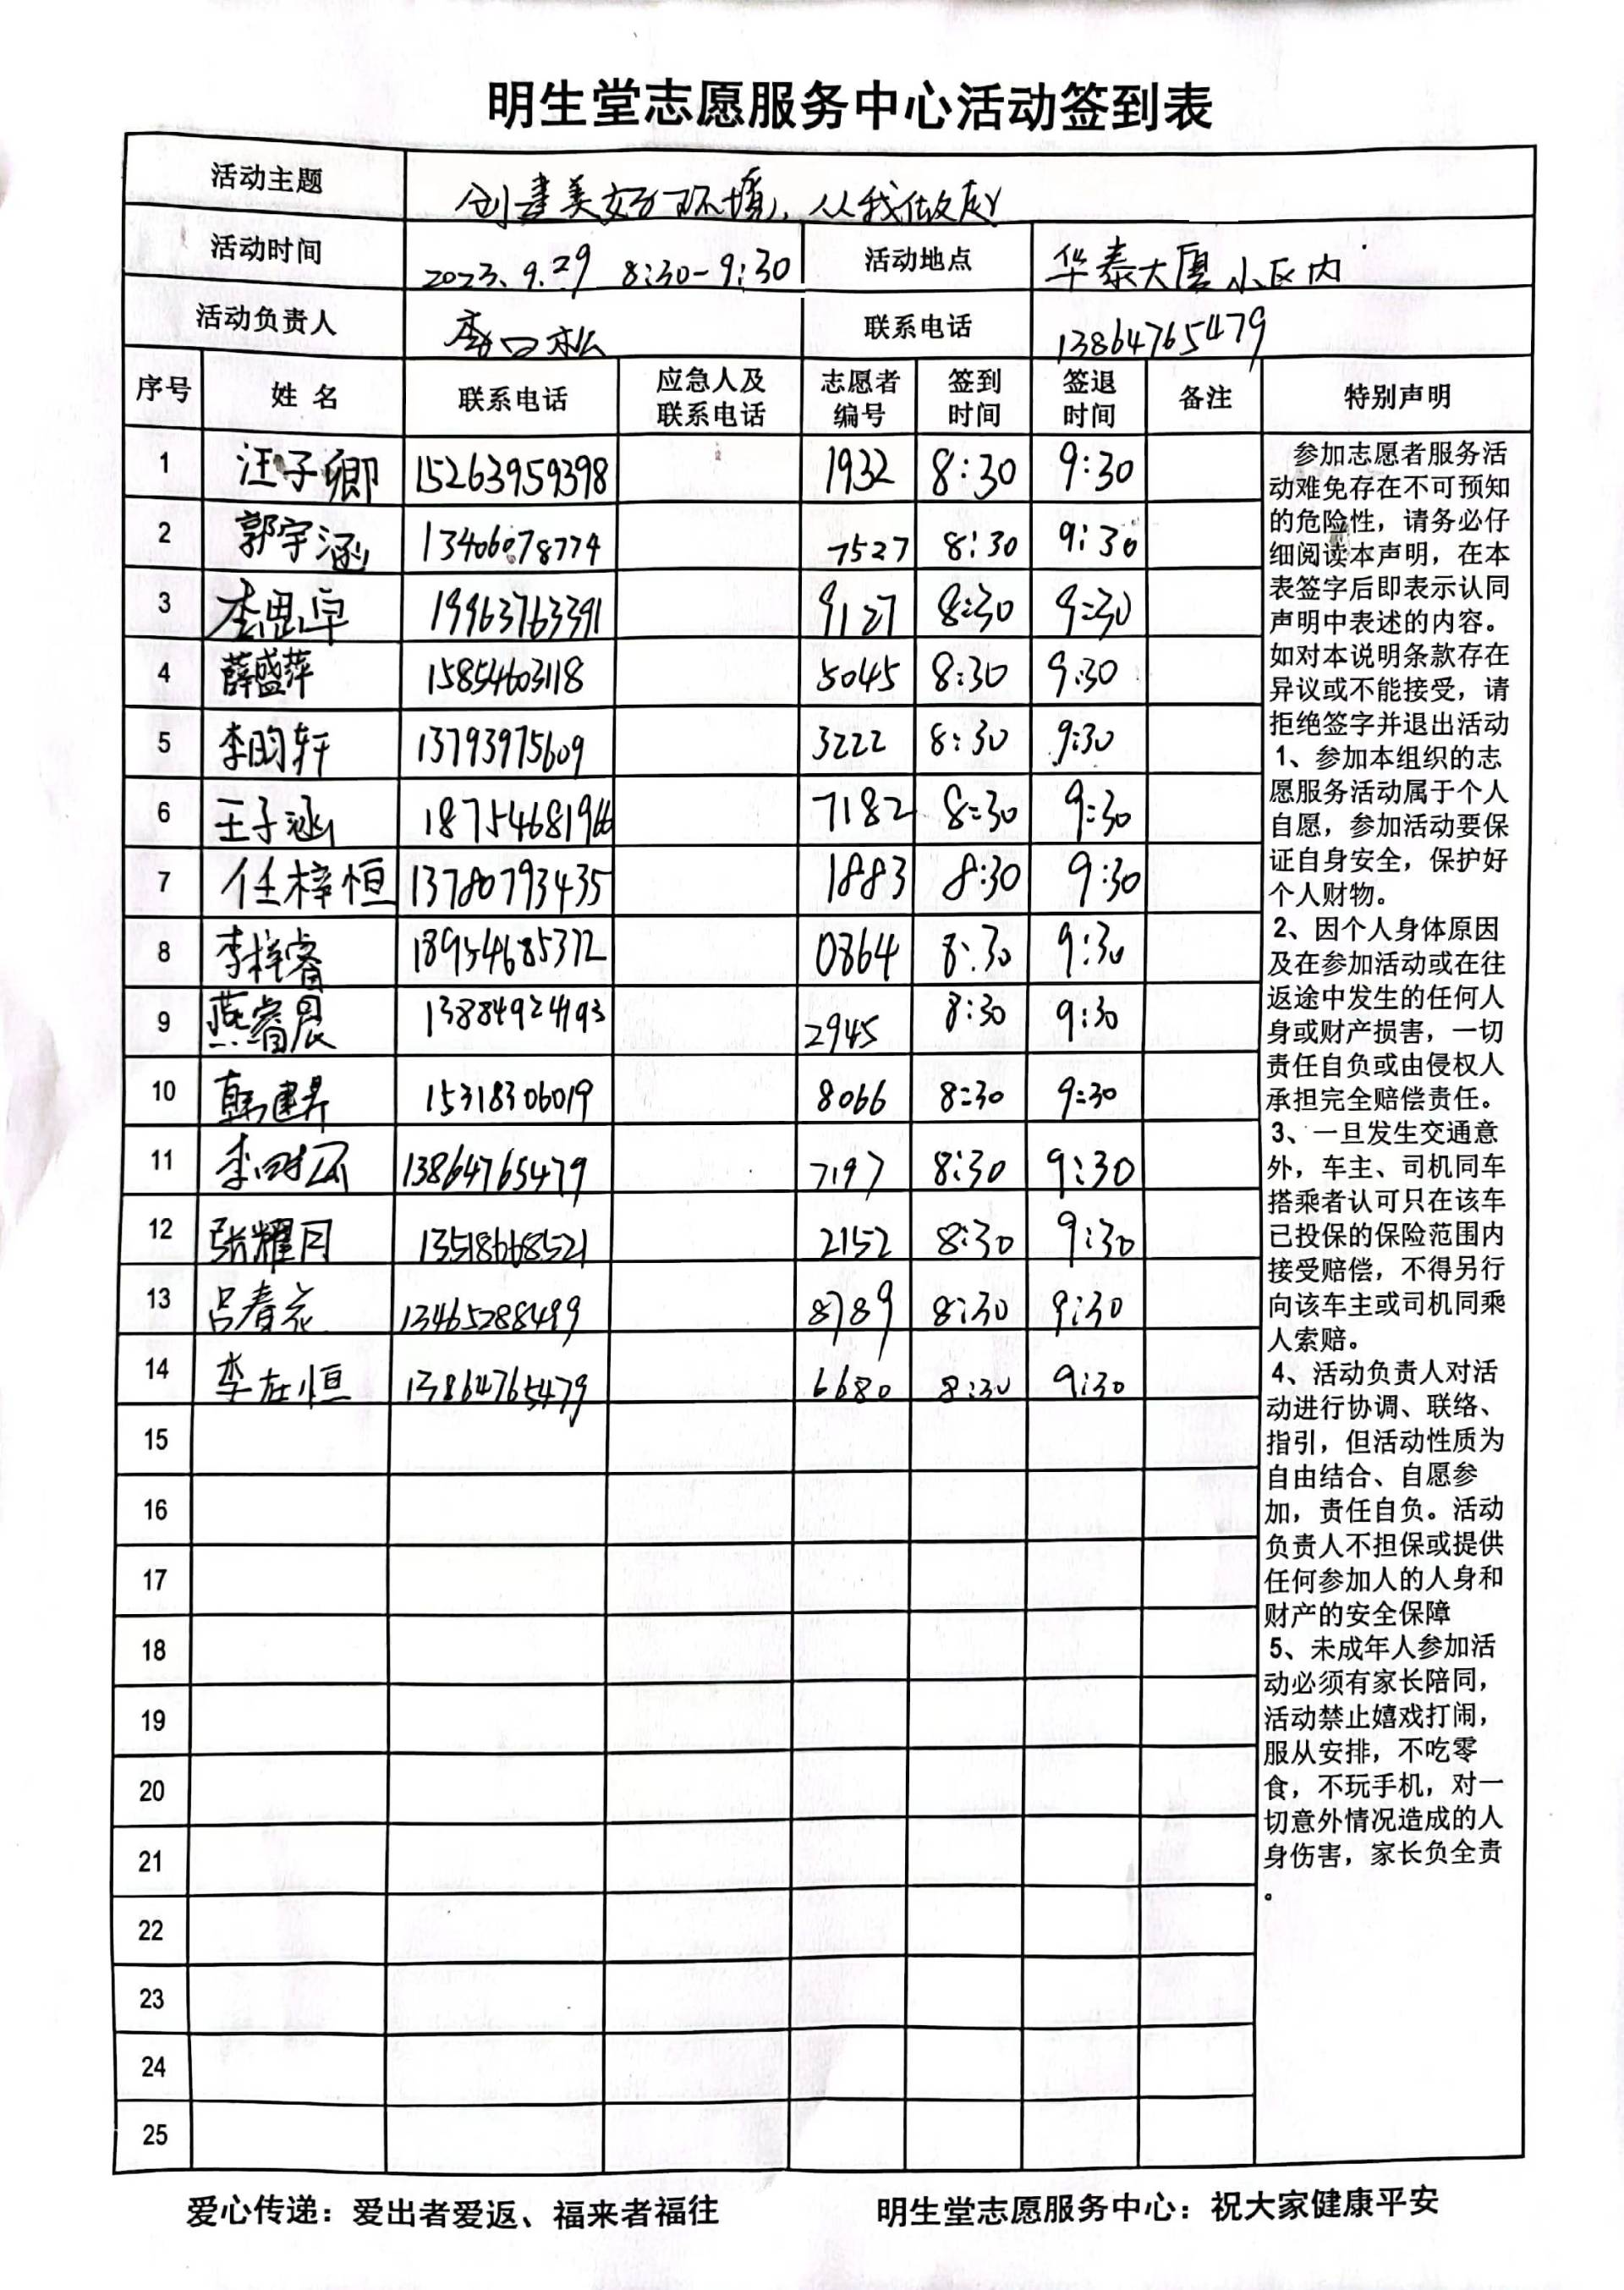 明生堂志愿服务中心活动签到表
活动主题 创建美好环境，从我做起
活动时间 2023.9.29 8:30-9:30 活动地点 华泰大厦小区内
活动负责人 联系电话 13864765479
序号 姓名 联系电话 应急人及联系电话 志愿者编号 签到时间 签退时间 备注 特别声明
1 汪子卿 15263959398 1932 8:30 9:30
2 郭宇涵 13406078774 7527 8:30 9:30
3 李思卓 19963763391 9127 8:30 9:30
4 薛盛萍 15854603118 5045 8:30 9:30
5 李昀轩 13793975609 3222 8:30 9:30
6 王子涵 18754681966 7182 8:30 9:30
7 任梓恒 13780793435 1883 8:30 9:30
8 李梓睿 18954685372 0864 8:30 9:30
9 燕睿晨 13884924193 2945 8:30 9:30
10 韩建昇 15318306019 8066 8:30 9:30
11 13864765479 7197 8:30 9:30
12 张耀月 13518668521 2152 8:30 9:30
13 吕春花 13465288499 8789 8:30 9:30
14 李在恒 13864765479 6680 8:30 9:30
15
16
17
18
19
20
21
22
23
24
25
参加志愿者服务活
动难免存在不可预知
的危险性，请务必仔
细阅读本声明，在本
表签字后即表示认同
声明中表述的内容。
如对本说明条款存在
异议或不能接受，请
拒绝签字并退出活动
1、参加本组织的志
愿服务活动属于个人
自愿，参加活动要保
证自身安全，保护好
个人财物。
2、因个人身体原因
及在参加活动或在往
返途中发生的任何人
身或财产损害，一切
责任自负或由侵权人
承担完全赔偿责任。
3、一旦发生交通意
外，车主、司机同车
搭乘者认可只在该车
已投保的保险范围内
接受赔偿，不得另行
向该车主或司机同乘
人索赔。
4、活动负责人对活
动进行协调、联络、
指引，但活动性质为
自由结合、自愿参
加，责任自负。活动
负责人不担保或提供
任何参加人的人身和
财产的安全保障
5、未成年人参加活
动必须有家长陪同，
活动禁止嬉戏打闹，
服从安排，不吃零
食，不玩手机，对一
切意外情况造成的人
身伤害，家长负全责
。
爱心传递：爱出者爱返、福来者福往 明生堂志愿服务中心：祝大家健康平安